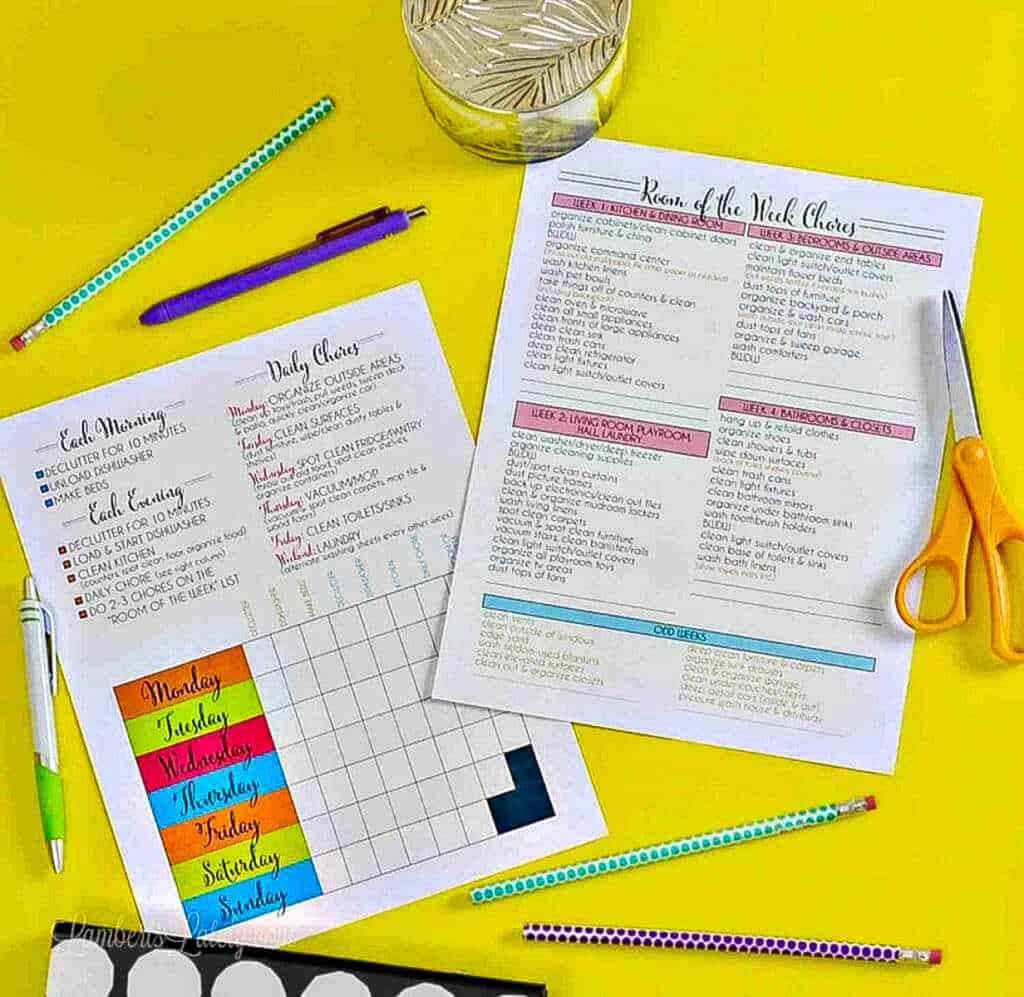 Each Morning
DECLUTTER FOR 10 MINUTES
UNLOAD DISHWASHER
MAKE BEDS
Each Evening
DECLUTTER FOR 10 MINUTES
LOAD & START DISHWASHER
CLEAN KITCHEN
(counters, spot clean floor, organize food)
DAILY CHORE (see right column)
DO 2-3 CHORES ON THE
"ROOM OF THE WEEK" LIST
Daily Chores
Monday: ORGANIZE OUTSIDE AREAS
(clean up toys/trash, pull weeds, sweep deck
& patio, quickly clean/organize car)
Tuesday: CLEAN SURFACES
(dust furniture, wipe/clean dusty tables &
Wednesday: SPOT CLEAN FRIDGE/PANTRY
(throw out old food, spot clean shelves,
organize containers)
Thursday: VACUUM/MOP
(vacuum & spot clean carpets, mop tile &
wood floors)
Friday: CLEAN TOILETS/SINKS
Weekend: LAUNDRY
(alternate washing sheets every other week)
Monday
Tuesday
Wednesday
Thursday
Friday
Saturday
Sunday
Room of the Week Chores
WEEK 1: KITCHEN & DINING ROOM
organize cabinets/clean cabinet doors
polish furniture & china
BWDW
organize command center
wash kitchen linens
wash pet bowls
take things off of counters & clean
clean oven & microwave
clean all small appliances
clean fronts of large appliances
deep clean sink
clean trash cans
deep clean refrigerator
clean light fixtures
clean light switch/outlet covers
WEEK 2: LIVING ROOM, PLAYROOM,
HALL, LAUNDRY
clean washer/dryer/deep freezer
organize cleaning supplies
BWDW
dust/spot clean curtains
dust picture frames
back up electronics/clean out files
clean & organize mudroom lockers
wash living linens
spot clean carpets
vacuum & spot clean furniture
vacuum stairs, clean banister/rails
clean light switch/outlet covers
organize all playroom toys
organize tv areas
dust tops of fans
WEEK 3: BEDROOMS & OUTSIDE AREAS
clean & organize end tables
clean light switch/outlet covers
maintain flower beds
dust tops of furniture
organize backyard & porch
organize & wash cars
dust tops of fans
organize & sweep garage
wash comforters
BWDW
WEEK 4: BATHROOMS & CLOSETS
hang up & refold clothes
organize shoes
clean showers & tubs
wipe down surfaces
clean trash cans
clean light fixtures
clean bathroom mirrors
organize under bathroom sinks
wash toothbrush holders
BWDW
clean light switch/outlet covers
clean base of toilets & sinks
wash bath linens
ODD WEEKS
clean vents
clean outside of windows
edge yard
wash seldom-used blankets
clean elevated surfaces
clean out & organize closets
deep clean furniture & carpets
organize junk drawers
clean & organize garage
clean under couches/chairs
deep detail cars (inside & out)
pressure wash house & driveway